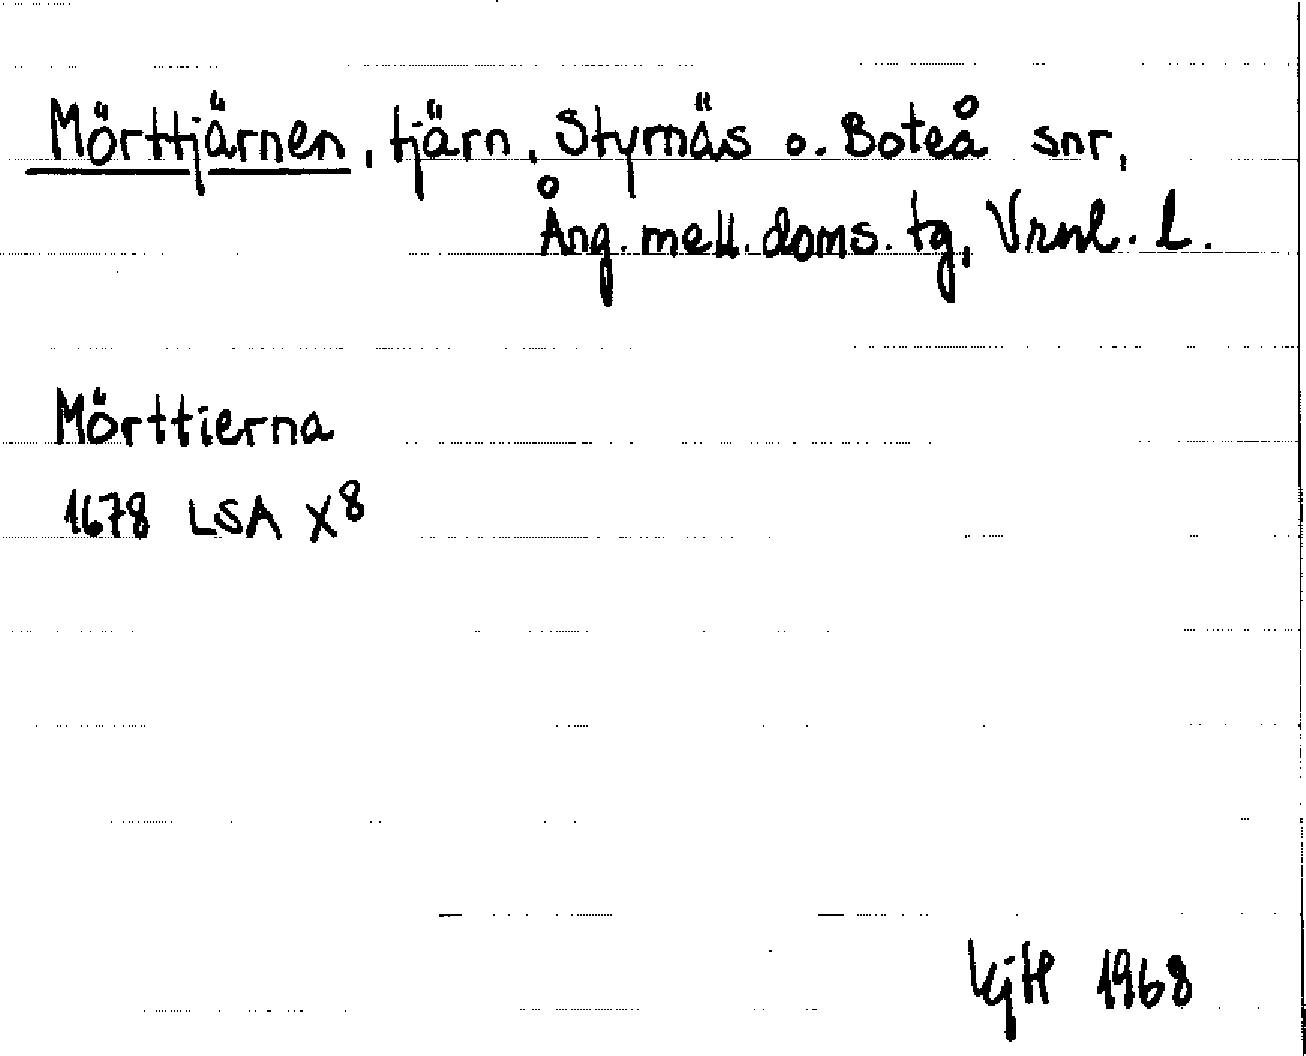 Mörttjärnen, tjärn, Styrnäs o. Boteå snr,
Ång. mell. doms. tg, Vrnl. l.
Mörttierna
1678 LSA X8
1968